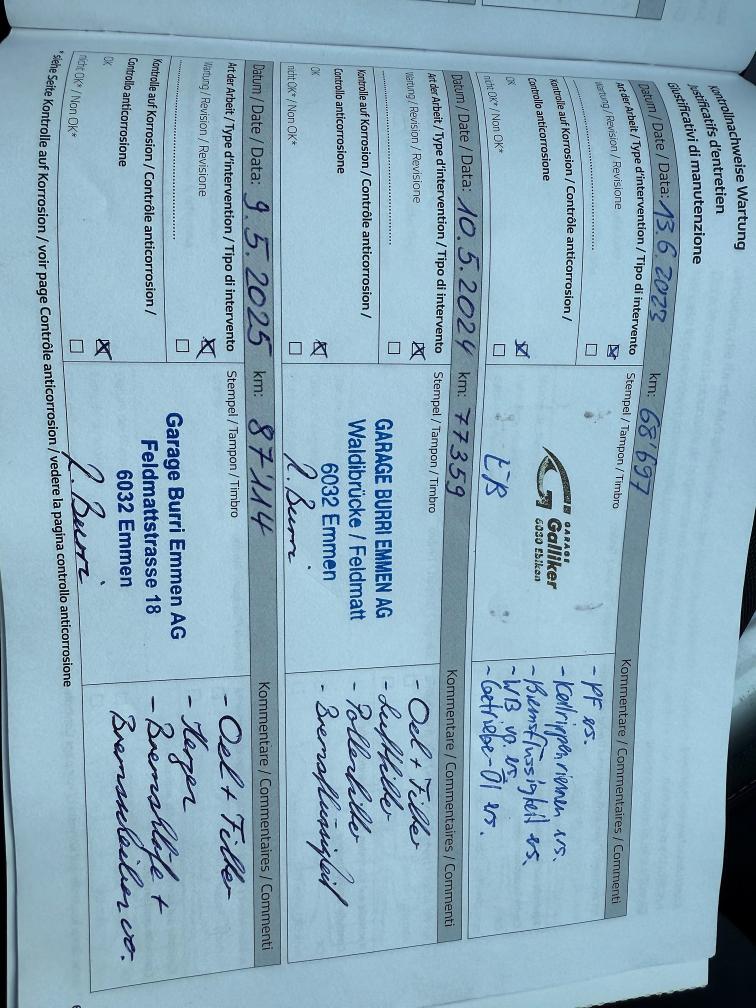 Kontrollnachweise Wartung
Justificatifs d'entretien
Giustificativi di manutenzione
Datum / Date / Data: 13.6.2023 km: 68'697
Art der Arbeit / Type d'intervention / Tipo di intervento
Wartung / Revision / Revisione
Kontrolle auf Korrosion / Contrôle anticorrosion /
Controllo anticorrosione
OK
nicht OK* / Non OK*
Stempel / Tampon / Timbro
GARAGE
Galliker
6030 Ebikon
Kommentare / Commentaires / Commenti
- PF ers.
- Keilrippenriemen ers.
- Bremsflüssigkeit ers.
- WB vo. ers.
- Getriebe-Öl ers.
Datum / Date / Data: 10.5.2024 km: 77359
Art der Arbeit / Type d'intervention / Tipo di intervento
Wartung / Revision / Revisione
Kontrolle auf Korrosion / Contrôle anticorrosion /
Controllo anticorrosione
OK
nicht OK* / Non OK*
Stempel / Tampon / Timbro
GARAGE BURRI EMMEN AG
Waldibrücke / Feldmatt
6032 Emmen
R. Burri
Kommentare / Commentaires / Commenti
- Oel + Filter
- Luftfilter
- Pollenfilter
- Bremsflüssigkeit
Datum / Date / Data: 9.5.2025 km: 87'114
Art der Arbeit / Type d'intervention / Tipo di intervento
Wartung / Revision / Revisione
Kontrolle auf Korrosion / Contrôle anticorrosion /
Controllo anticorrosione
OK
nicht OK* / Non OK*
Stempel / Tampon / Timbro
Garage Burri Emmen AG
Feldmattstrasse 18
6032 Emmen
R. Burri
Kommentare / Commentaires / Commenti
- Oel + Filter
- Bremsklötze +
Bremsscheiben vo.
* siehe Seite Kontrolle auf Korrosion / voir page Contrôle anticorrosion / vedere la pagina controllo anticorrosione